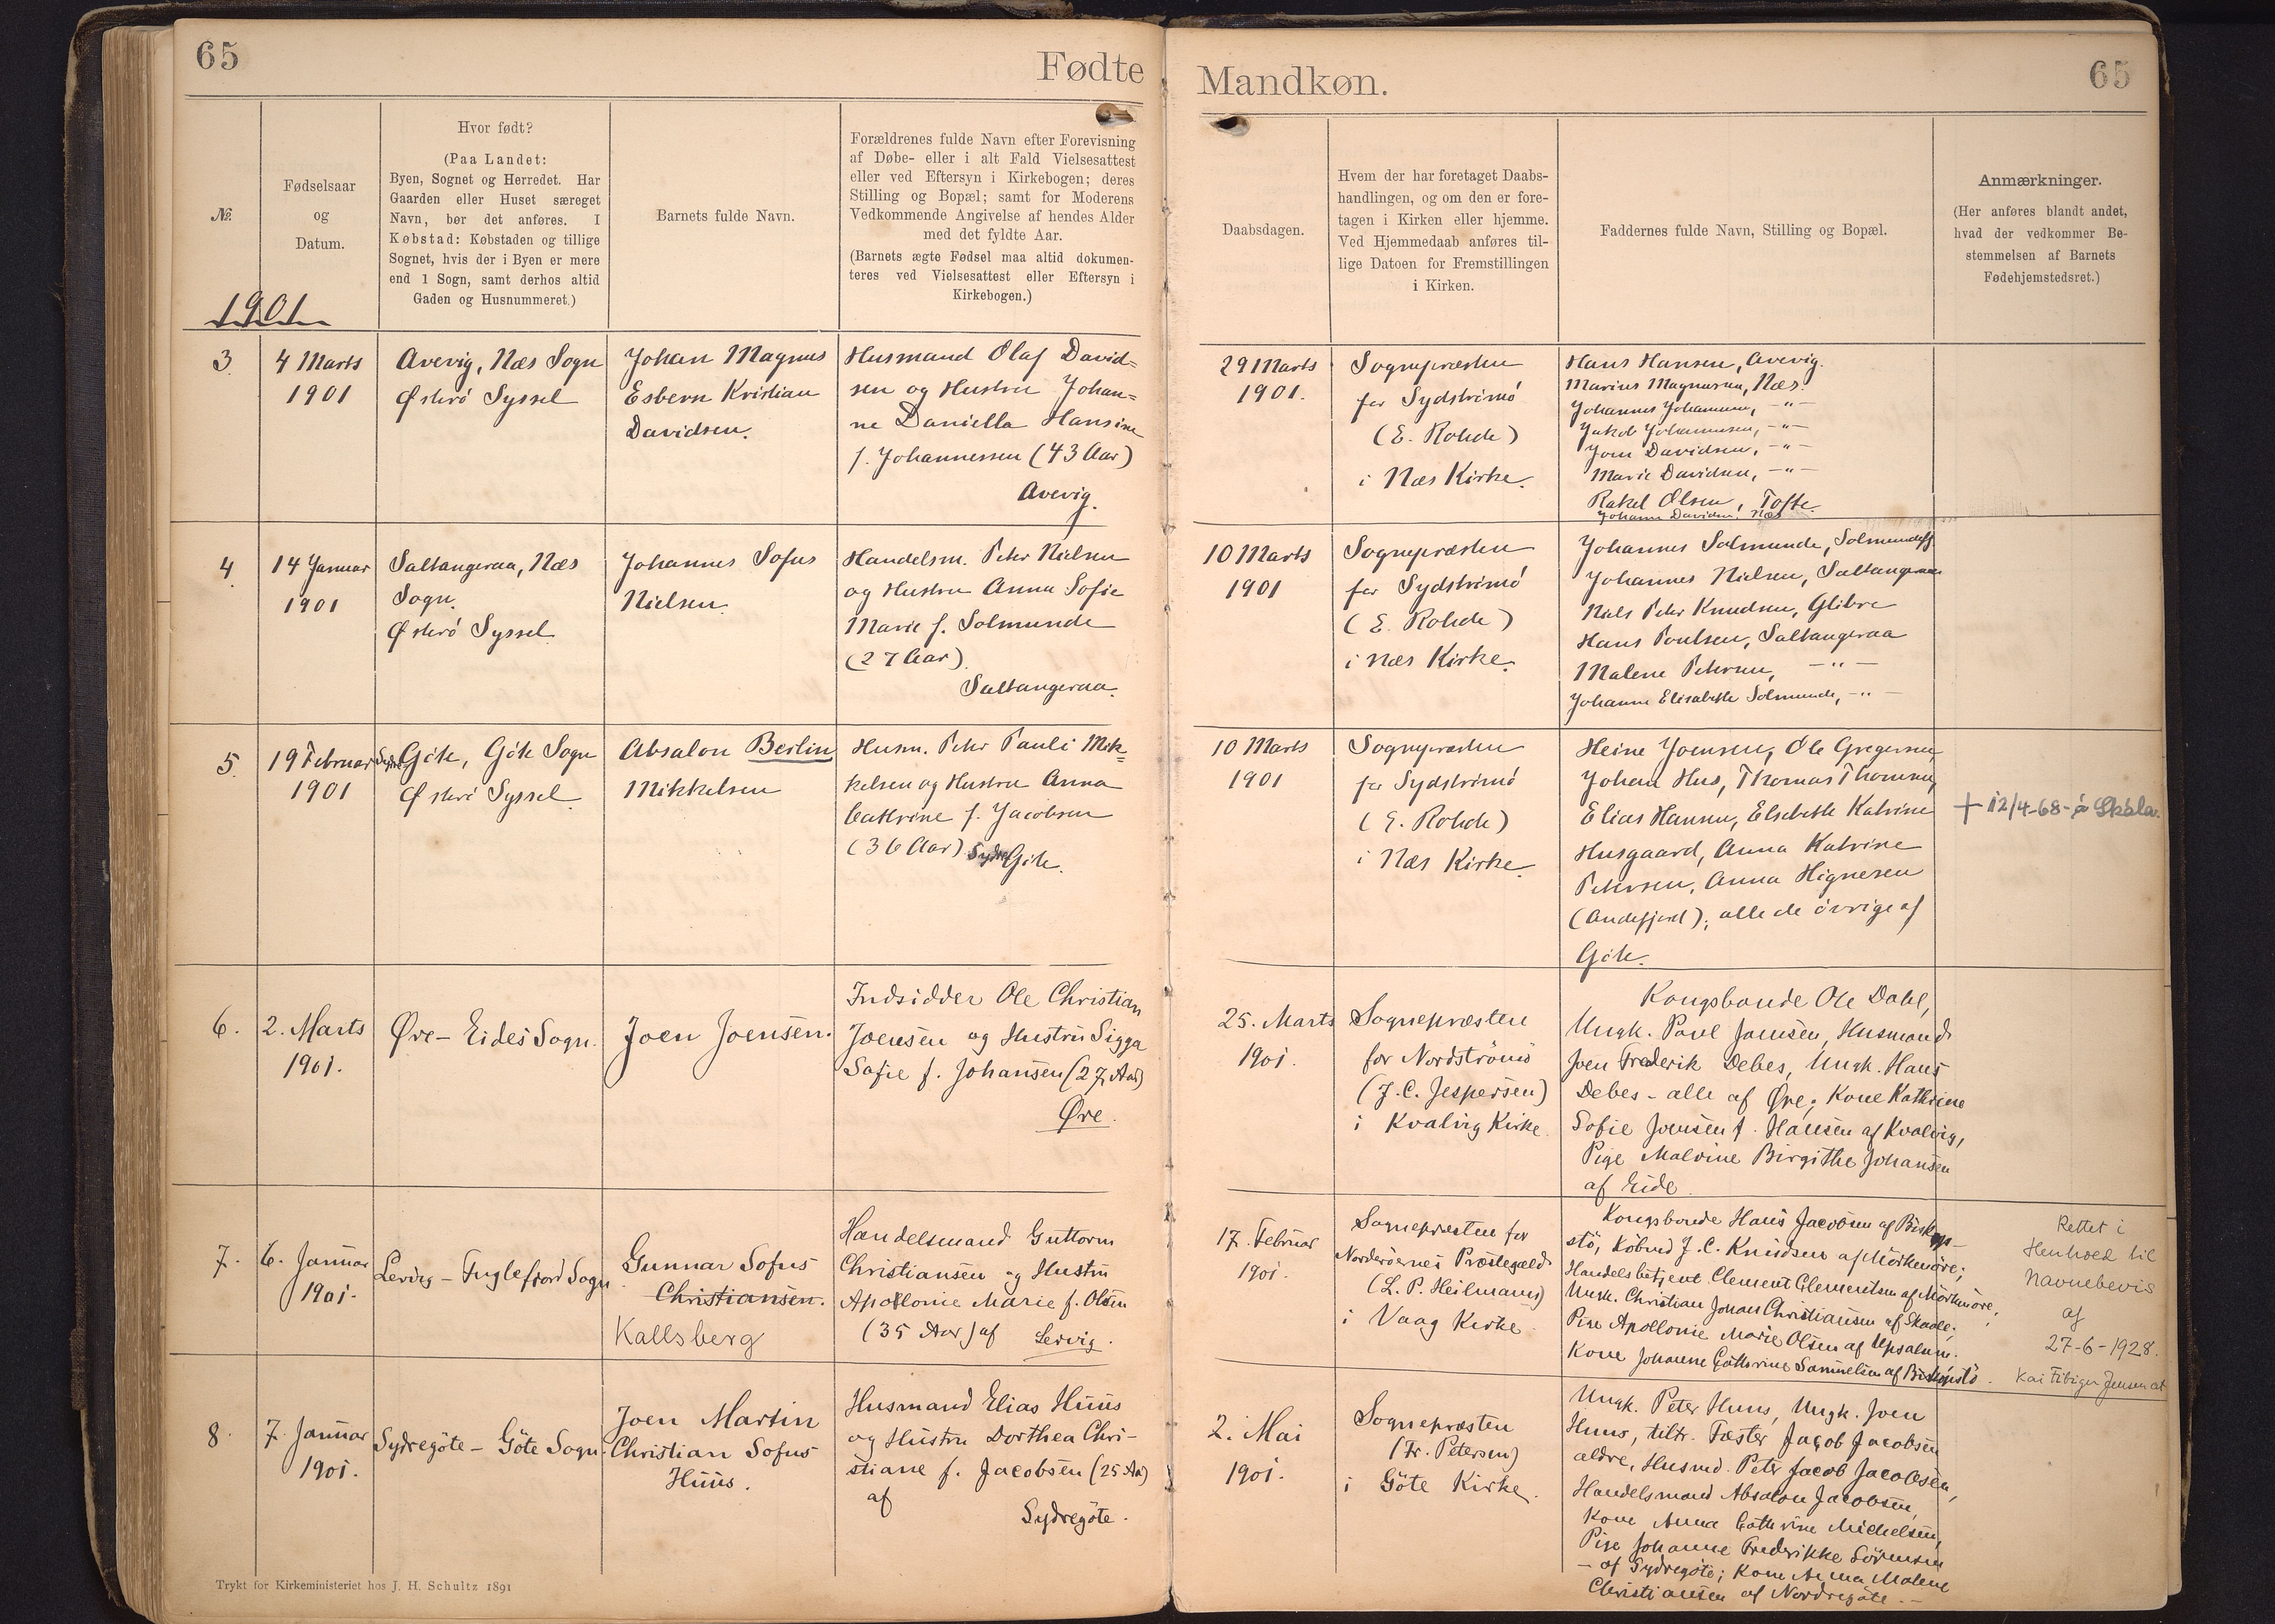 65
Fødte
Nr.
Fødselsaar
og
Datum.
Hvor født?
(Paa Landet:
Byen, Sognet og Herredet. Har
Gaarden eller Huset særeget
Navn, bør det anføres. I
Købstad: Købstaden og tillige
Sognet, hvis der i Byen er mere
end 1 Sogn, samt derhos altid
Gaden og Husnummeret.)
Barnets fulde Navn.
Forældrenes fulde Navn efter Forevisning
af Døbe- eller i alt Fald Vielsesattest
eller ved Eftersyn i Kirkebogen; deres
Stilling og Bopæl; samt for Moderens
Vedkommende Angivelse af hendes Alder
med det fyldte Aar.
(Barnets ægte Fødsel maa altid dokumen-
teres ved Vielsesattest eller Eftersyn i
Kirkebogen.)
1901
3.
4 Marts
1901
Avevig, Næs Sogn
Østerö Syssel
Johan Magnus
Esbern Kristian
Davidsen.
Husmand Olaf David=
sen og Hustru Johan=
ne Daniella Hansine
f. Johannessen (43 Aar)
Avevig.
4.
14 Januar
1901
Saltangeraa, Næs
Sogn.
Østerö Syssel
Johannes Sofus
Nielsen.
Handelsm. Peter Nielsen
og Hustru Anna Sofie
Marie f. Solmunde
(27 Aar).
Saltangeraa.
5.
19 Februar
1901
Sydre Göte, Göte Sogn
Østerö Syssel
Absalon Berlin
Mikkelsen
Husm. Peter Pauli Mik=
kelsen og Hustru Anna
Cathrine f. Jacobsen
(36 Aar) Sydre Göte.
6.
2. Marts
1901.
Øre - Eides Sogn.
Joen Joensen.
Indsidder Ole Christian
Joensen og Hustru Sigga
Sofie f. Johansen (27 Aar)
Øre.
7.
6. Januar
1901.
Lervig - Fuglefjord Sogn
Gunnar Sofus
Christiansen.
Kallsberg
Handelsmand Guttorm
Christiansen og Hustru
Apollonie Marie f. Olsen
(35 Aar) af Lervig.
8.
7. Januar
1901.
Sydregöte - Göte Sogn.
Joen Martin
Christian Sofus
Huus.
Husmand Elias Huus
og Hustru Dorthea Chri-
stiane f. Jacobsen (25 Aar)
af
Sydregöte.
Trykt for Kirkeministeriet hos J. H. Schultz 1891
Mandkøn.
65
Daabsdagen.
Hvem der har foretaget Daabs-
handlingen, og om den er fore-
tagen i Kirken eller hjemme.
Ved Hjemmedaab anføres til-
lige Datoen for Fremstillingen
i Kirken.
Faddernes fulde Navn, Stilling og Bopæl.
Anmærkninger.
(Her anføres blandt andet,
hvad der vedkommer Be-
stemmelsen af Barnets
Fødehjemstedsret.)
29 Marts
1901.
Sognepræsten
for Sydströmö
(E. Rohde)
i Næs Kirke.
Hans Hansen, Avevig.
Marius Magnussen, Næs.
Johannes Johannesen, -"-
Jakob Johannesen, -"-
Joen Davidsen, -"-
Marie Davidsen, -"-
Rakel Olsen, Tofte.
Johanne Davidsen, Næs
10 Marts
1901
Sognepræsten
for Sydströmö
(E. Rohde)
i Næs Kirke.
Johannes Solmunde,
Johannes Nielsen, Saltangeraa
Niels Peter Knudsen, Glibre
Hans Poulsen, Saltangeraa
Malene Petersen, -"-
Johanne Elisabeth Solmunde, -"-
10 Marts
1901
Sognepræsten
for Sydströmö
(E. Rohde)
i Næs Kirke.
Heine Joensen, Ole Gregersen,
Johan Hus, Thomas Thomsen,
Elias Hansen, Elsebeth Katrine
Husgaard, Anna Katrine
Petersen, Anna Højgnesen
(Andefjord); alle de övrige af
Göte.
+ 12/4-68- á Skála.
25. Marts
1901.
Sognepræsten
for Nordströmö
(J. C. Jespersen)
i Kvalvig Kirke.
Kongsbonde Ole Dahl,
Ungk. Poul Joensen, Husmand
Joen Frederik Debes, Ungk. Hans
Debes - alle af Øre; Kone Kathrine
Sofie Joensen f. Hansen af Kvalvig,
Pige Malvine Birgithe Johansen
af Eide.
17. Februar
1901.
Sognepræsten for
Norderöernes Præstegæld
(L. P. Heilmann)
i Vaag Kirke
Kongsbonde Hans Jacobsen af Biskops-
stö, Köbmd J. C. Knudsen af Mörkenöre;
Handelsbetjent Clement Clementsen af Mörkenöre;
Ungk. Christian Jonas Christiansen af Skaale;
Pige Apollonie Marie Olsen af Upsalum.
Kone Johanne Cathrine Samuelsen af Biskopstö.
Rettet i
Henhold til
Navnebevis
af
27-6-1928.
Kai Fibiger Jensen
2. Mai
1901.
Sognepræsten
(Fr. Petersen)
i Göte Kirke.
Ungk. Peter Huus, Ungk. Joen
Huus, tiltr. Fæster Jacob Jacobsen
ældre, Husmd. Peter Jacob Jacobsen,
Handelsmand Absalon Jacobsen,
Kone Anna Cathrine Michelsen,
Pige Johanne Frederikke Sörensen
- af Sydregöte; Kone Anna Malene
Christiansen af Nordregöte. -